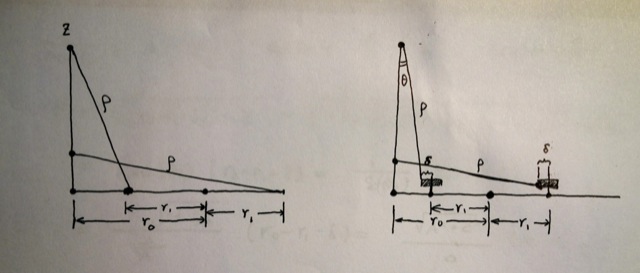 z
ρ
ρ
r₁
r₀
r₁
θ
ρ
δ
ρ
δ
r₁
r₀
r₁